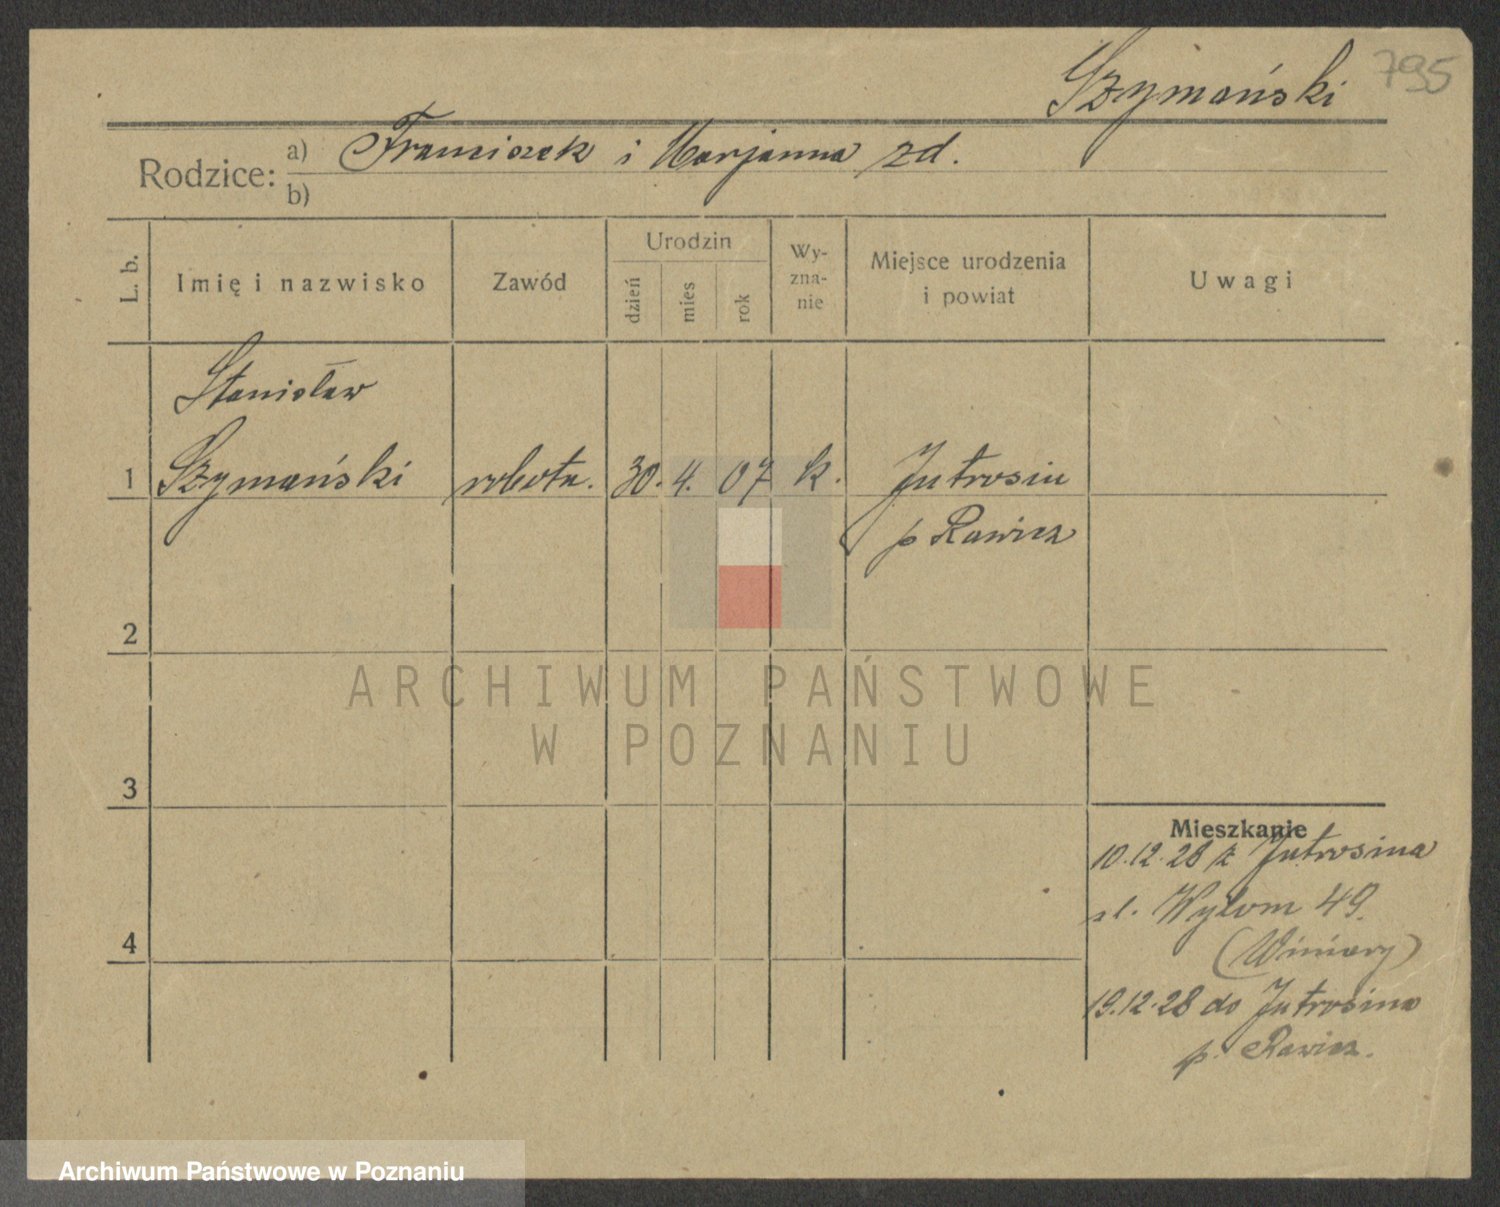 Szymański 795
Rodzice: a) Franciszek i Marjanna zd.
b)
L. b.
Imię i nazwisko
Zawód
Urodzin
dzień
mies
rok
Wy-
zna-
nie
Miejsce urodzenia
i powiat
Uwagi
Stanisław
1 Szymański robotn. 30. 4. 07 k. Jutrosin
p Rawicz
2
3
4
Mieszkanie
10.12.28 z Jutrosina
ul. Wyłom 49.
(Winiary)
19.12.28 do Jutrosina
p. Rawicz.
ARCHIWUM PAŃSTWOWE
W POZNANIU
Archiwum Państwowe w Poznaniu